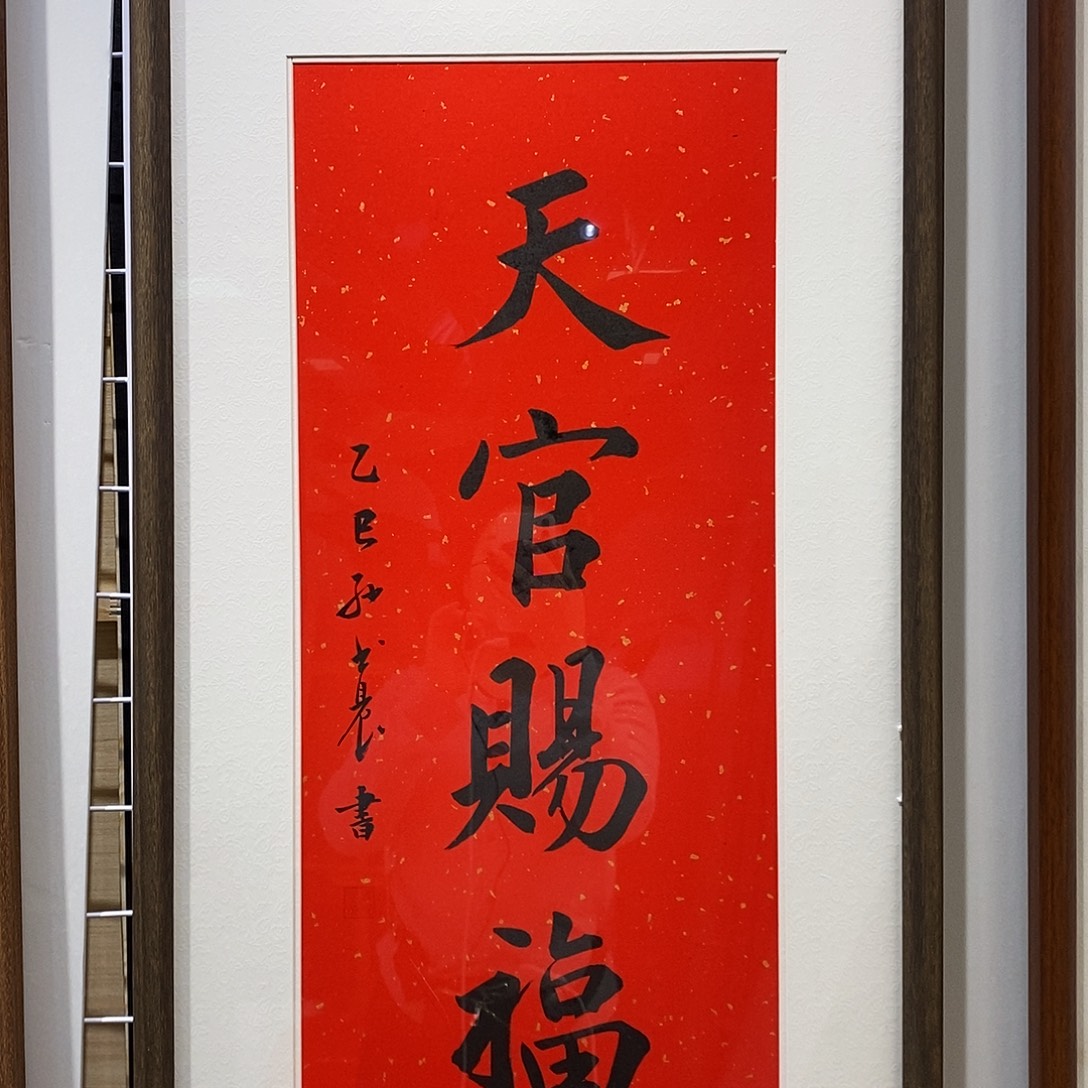 天官賜福
乙巳孙長書